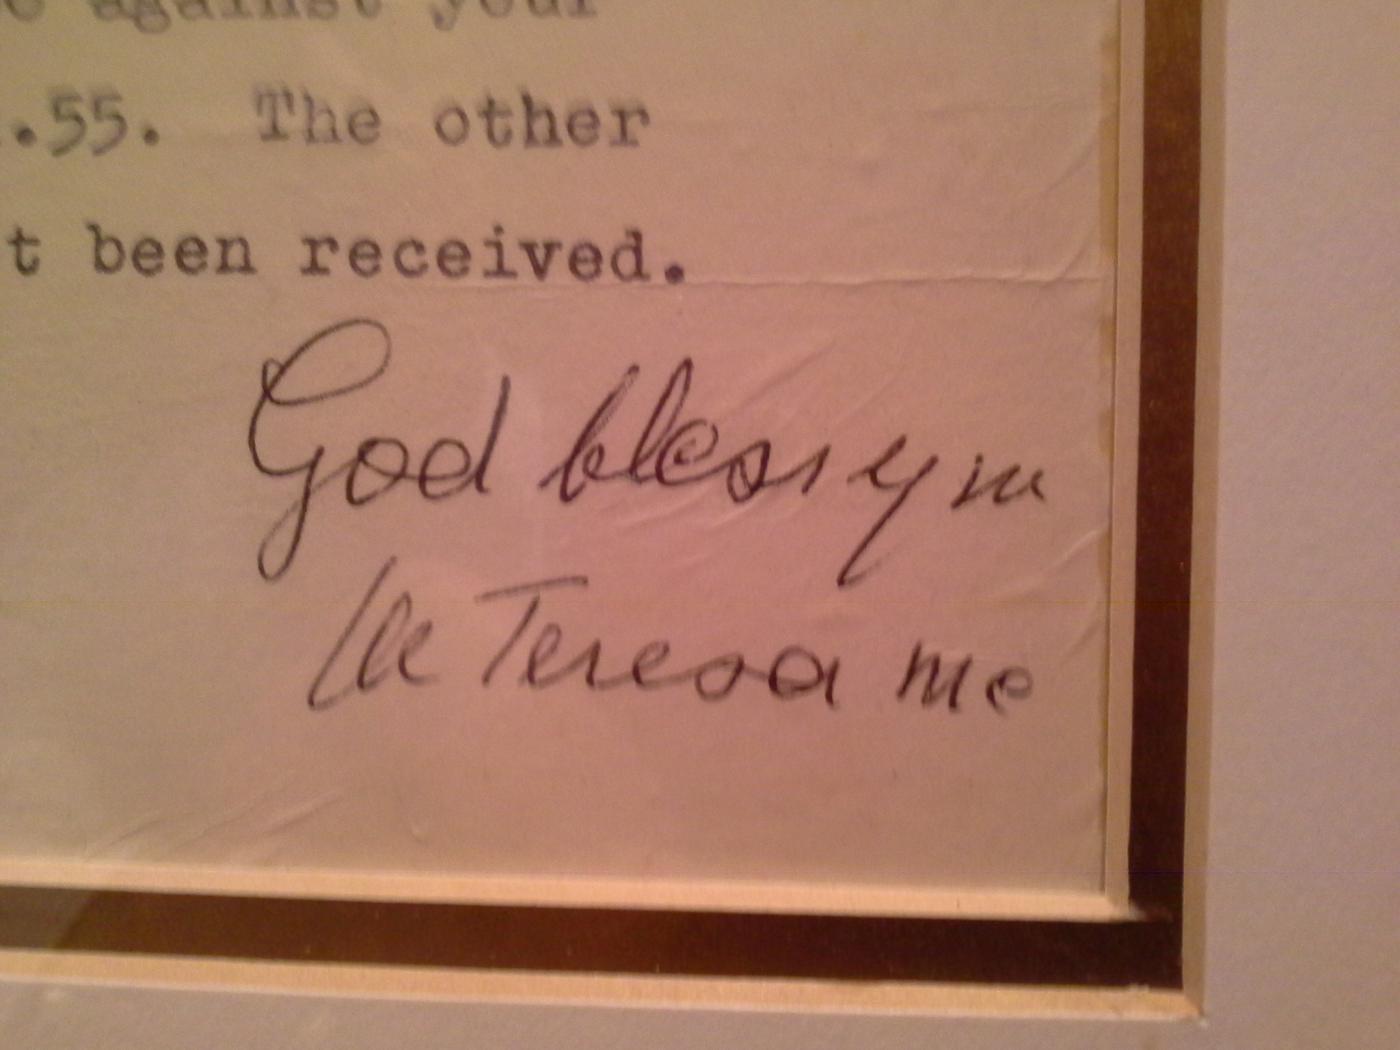 against your
.55. The other
t been received.
God bless you
M Teresa mc